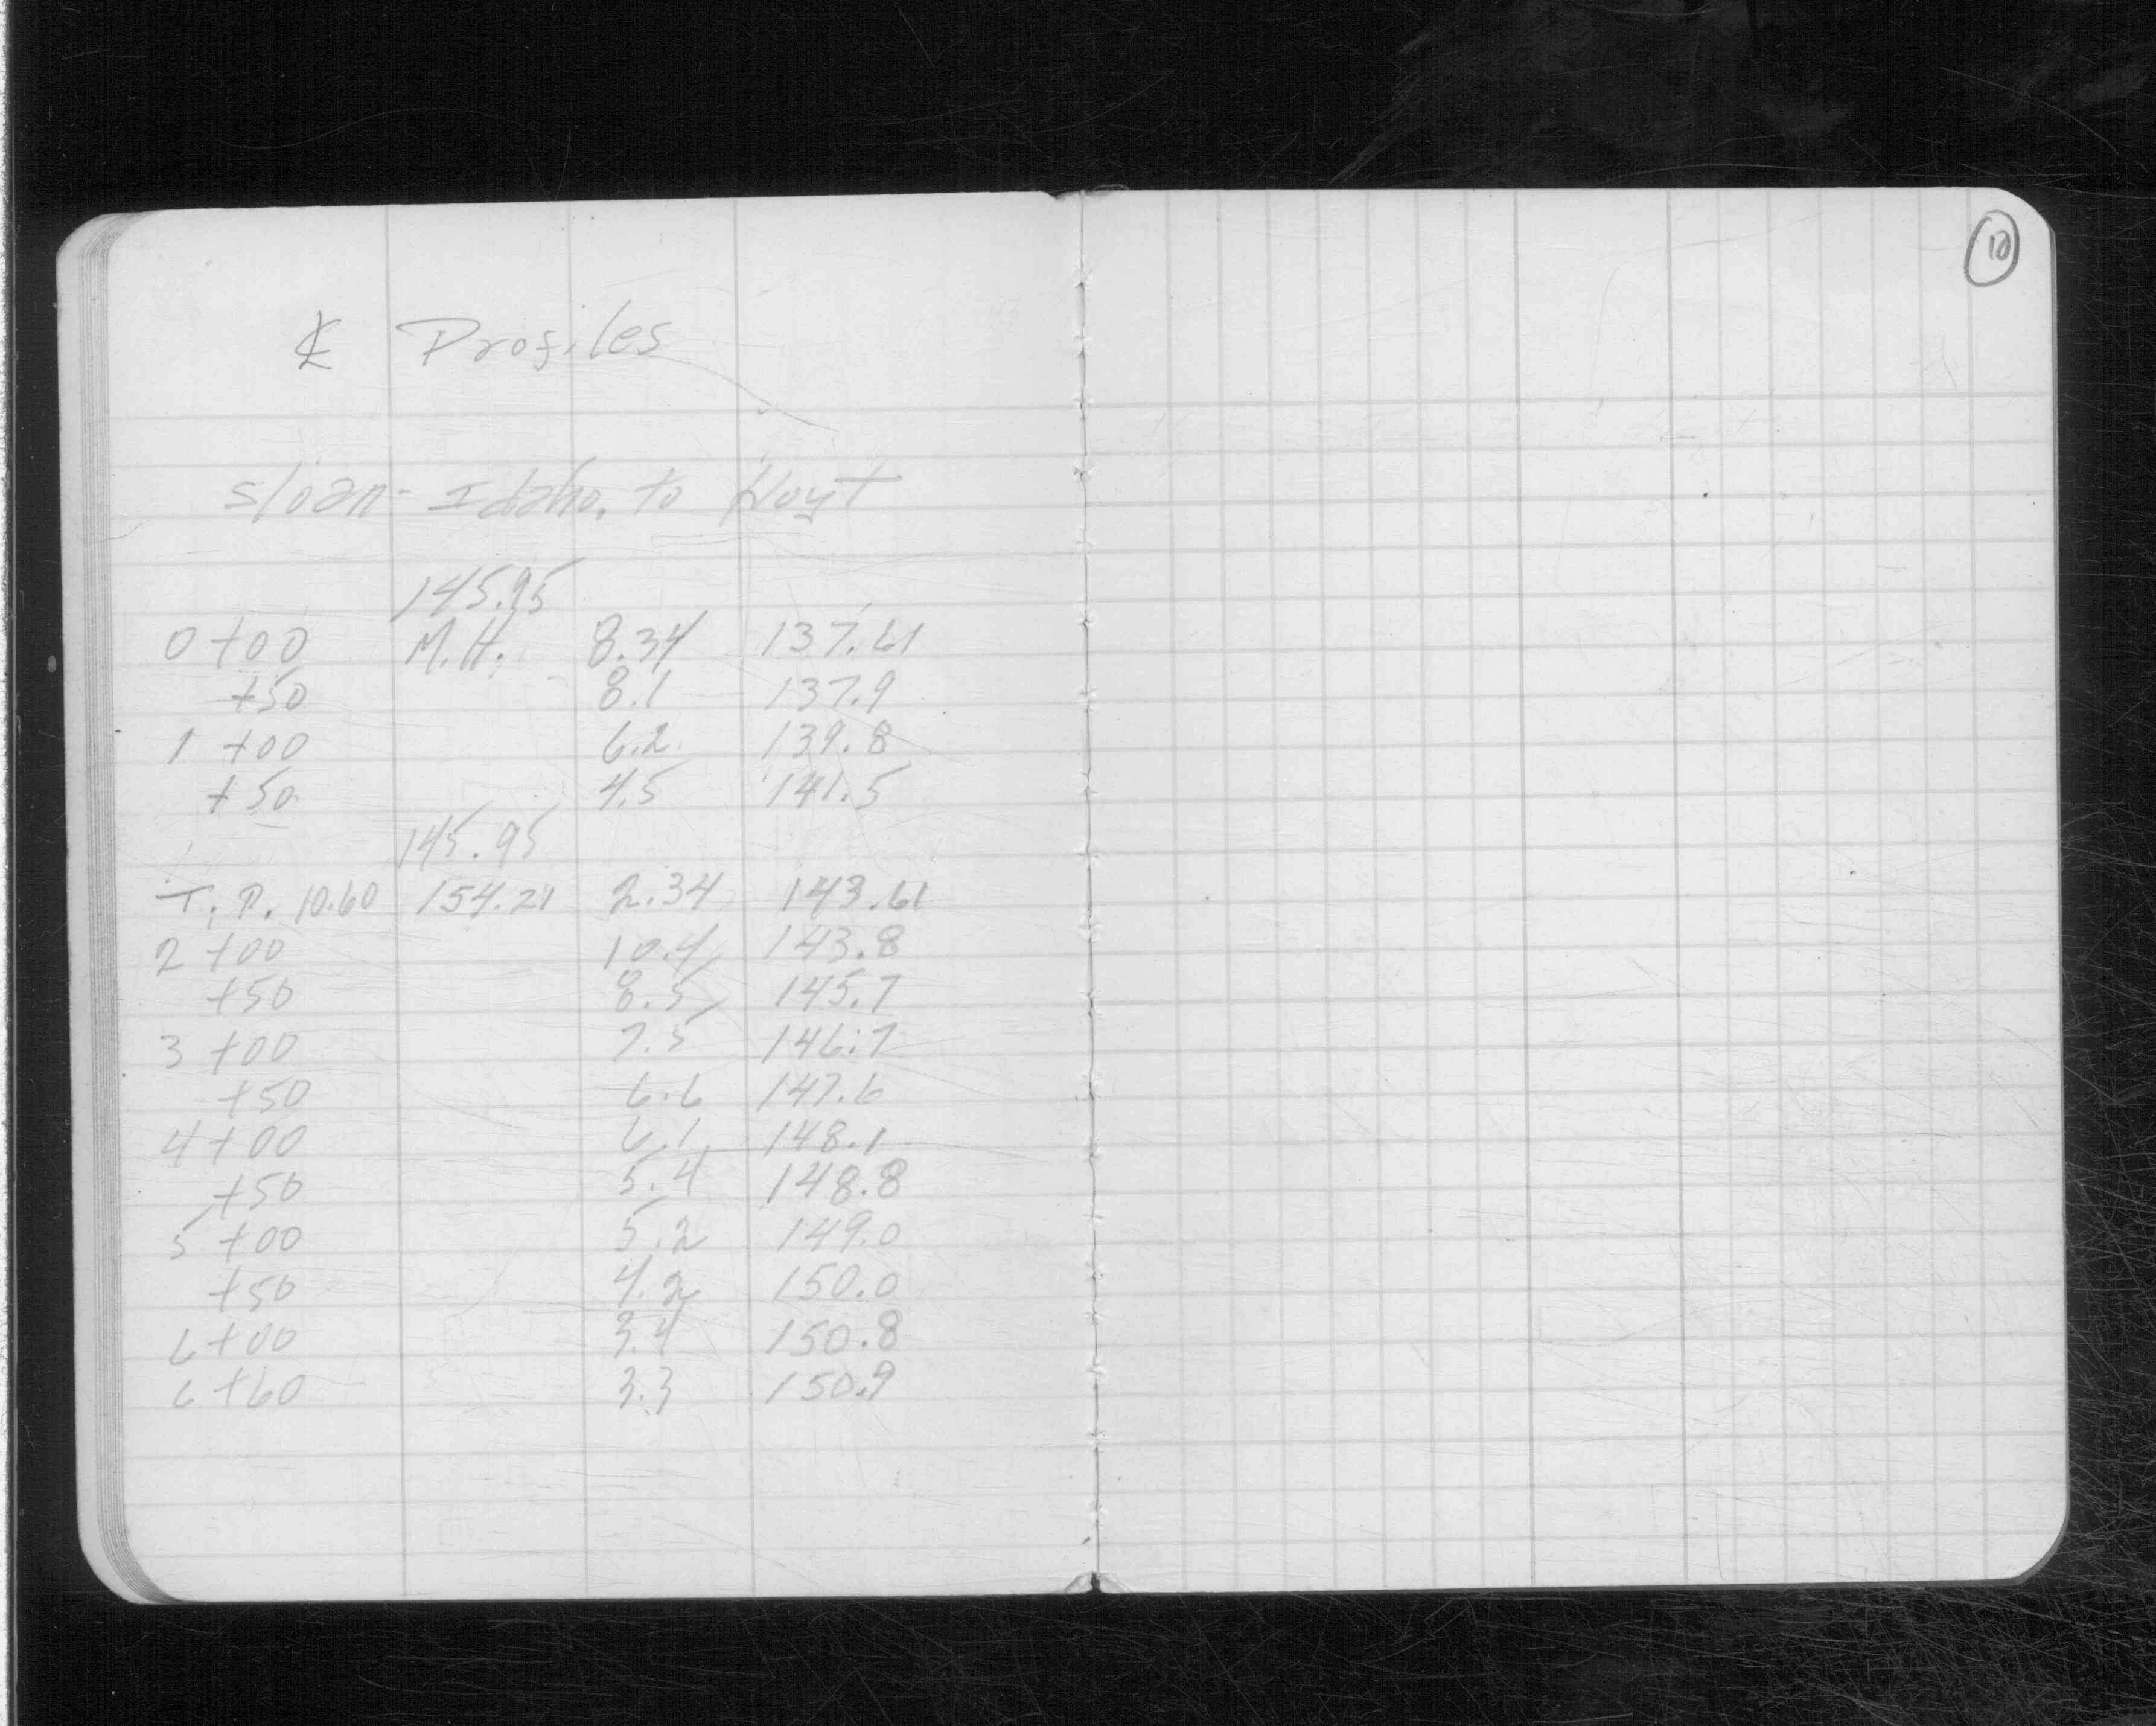 ℄ Profiles
Sloan - Idaho. to Hoyt
145.95
0 +00 M.H. 8.34 137.61
+50 8.1 137.9
1 +00 6.2 139.8
+50 4.5 141.5
145.95
T.P. 10.60 154.21 2.34 143.61
2 +00 10.4 143.8
+50 8.5 145.7
3 +00 7.5 146.7
+50 6.6 147.6
4 +00 6.1 148.1
+50 5.4 148.8
5 +00 5.2 149.0
+50 4.2 150.0
6 +00 3.4 150.8
6 +60 3.3 150.9